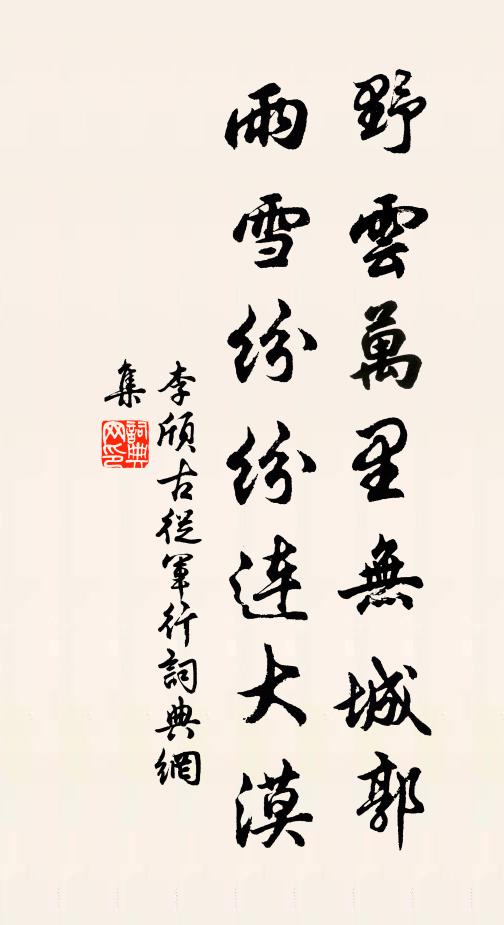 野雲萬里無城郭
雨雪紛紛連大漠
李頎古從軍行詞典網
集
詞典
网印